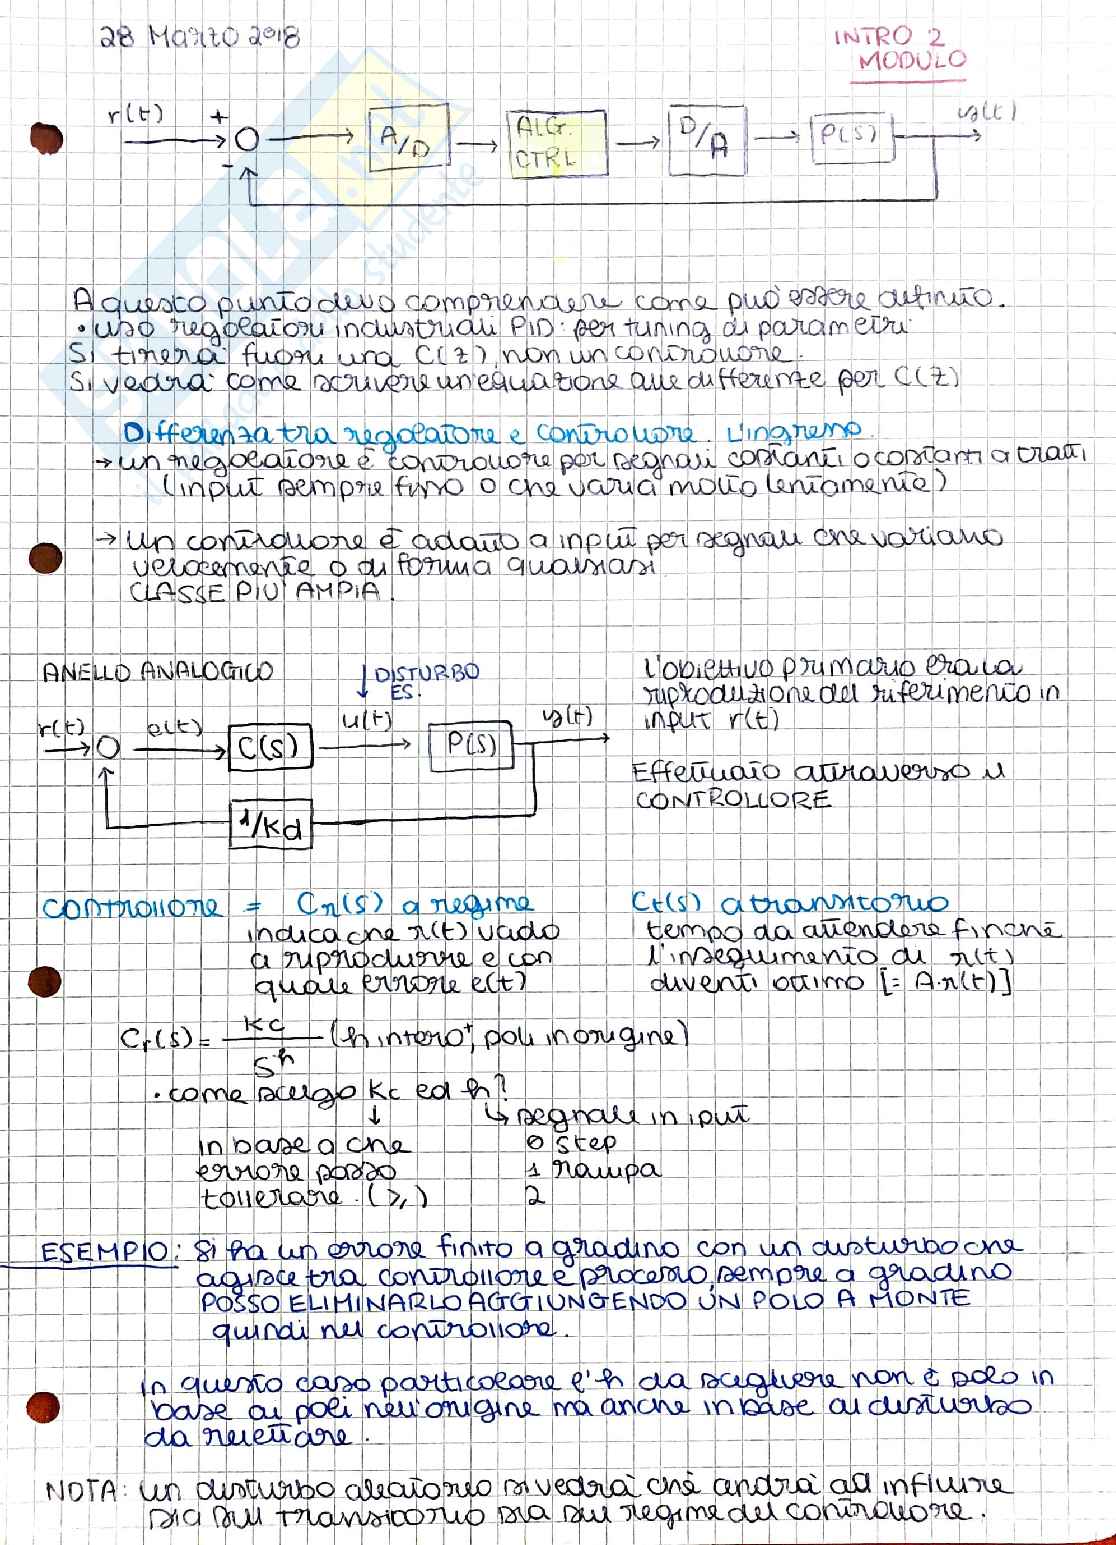 28 Marzo 2018
INTRO 2
MODULO
r(t) + - A/D ALG. CTRL D/A P(S) y(t)
A questo punto devo comprendere come può essere definito.
• uso regolatori industriali PID: per tuning di parametri
Si tirerà fuori una C(z), non un controllore.
Si vedrà come scrivere un'equazione alle differenze per C(z)
Differenza tra regolatore e controllore. L'ingresso.
→ un regolatore è controllore per segnali costanti o costanti a tratti
(input sempre fisso o che varia molto lentamente)
→ un controllore è adatto a input per segnali che variano
velocemente o di forma qualsiasi
CLASSE PIU' AMPIA!
ANELLO ANALOGICO
↓ DISTURBO
ES!
r(t) e(t) C(s) u(t) P(s) y(t)
1/Kd
L'obiettivo primario era la
riproduzione del riferimento in
input r(t)
Effettuato attraverso il
CONTROLLORE
controllore = Cr(s) a regime
indica che r(t) vado
a riprodurre e con
quale errore e(t)
Ct(s) a transitorio
tempo da attendere finché
l'inseguimento di r(t)
diventi ottimo [= A·r(t)]
Cr(s) = Kc / S^h (h intero⁺, poli in origine)
• come scelgo Kc ed h?
↓ ↳ segnale in input
in base a che
errore posso
tollerare. (≥)
0 step
1 rampa
2
ESEMPIO: Si ha un errore finito a gradino con un disturbo che
agisce tra controllore e processo, sempre a gradino
POSSO ELIMINARLO AGGIUNGENDO UN POLO A MONTE
quindi nel controllore.
In questo caso particolare l'h da scegliere non è solo in
base ai poli nell'origine ma anche in base al disturbo
da reiettare.
NOTA: un disturbo aleatorio si vedrà che andrà ad influire
sia sul transitorio sia sul regime del controllore.